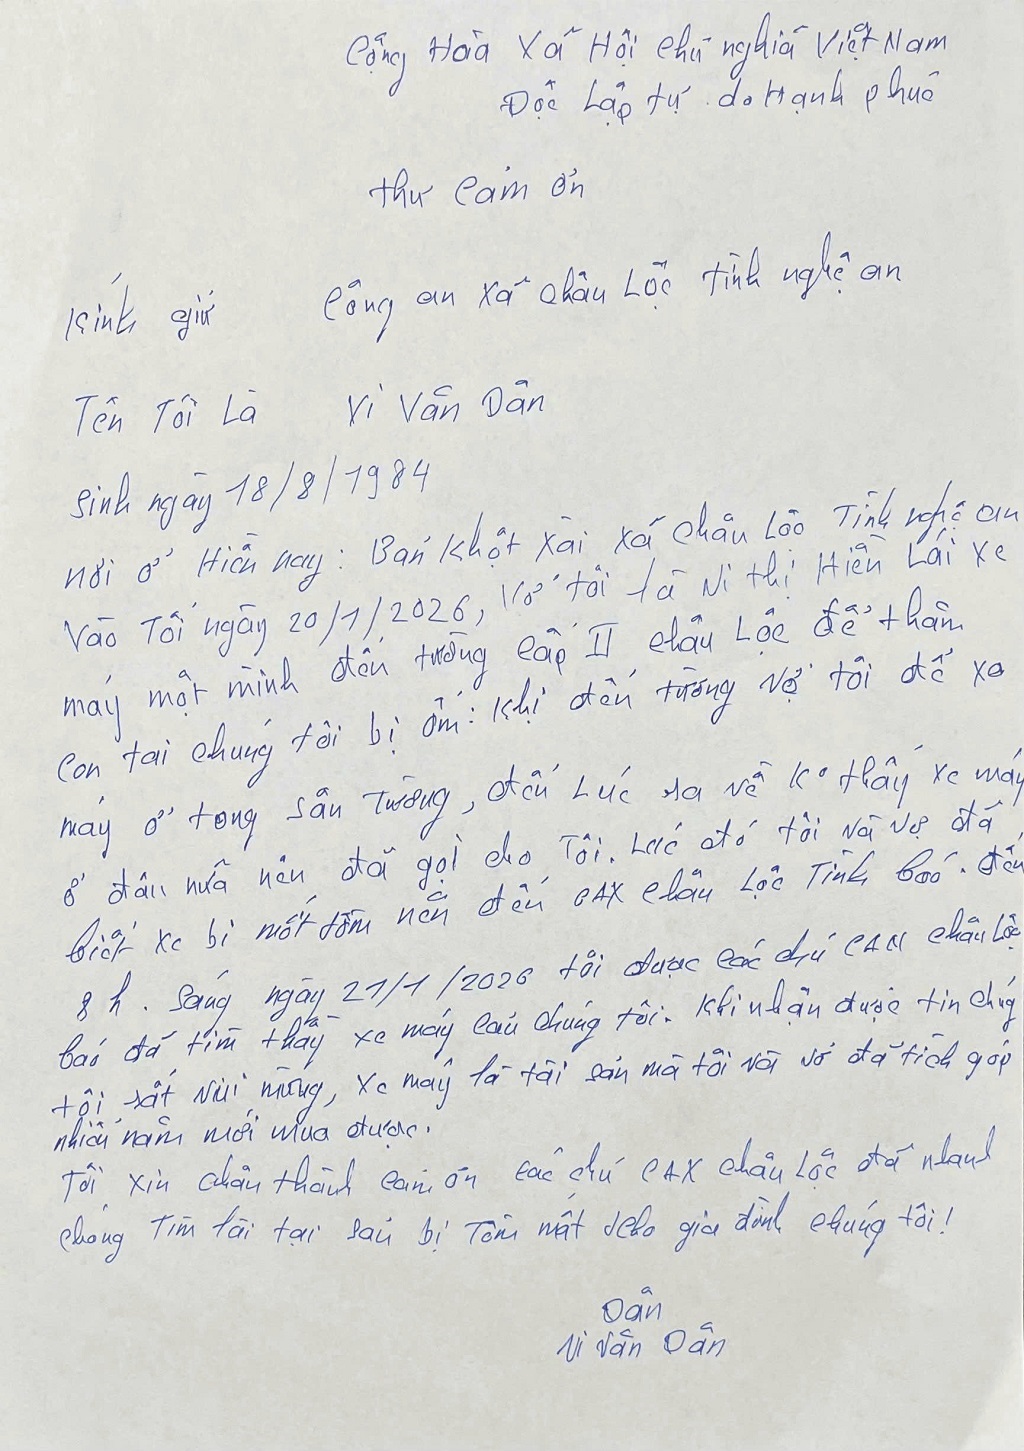 Cộng Hòa Xã Hội chủ nghĩa Việt Nam
Độc Lập tự do Hạnh phúc
thư Cảm ơn
Kính gửi Công an xã Châu Lộc tỉnh nghệ an
Tên Tôi Là Vi Văn Dân
Sinh ngày 18/8/1984
nơi ở Hiện nay: Bản Khột Xài xã Châu Lộc Tỉnh nghệ an
Vào Tối ngày 20/1/2026, Vợ tôi là Vi thị Hiền Lái xe
máy một mình đến tường cấp II Châu Lộc để thăm
con tai chúng tôi bị ốm: Khi đến tường vợ tôi để xe
máy ở tong sân Tường, đến Lúc ra về Ko thấy xe máy
ở đâu nữa nên đã gọi cho Tôi. Lúc đó tôi và vợ đã
biết xe bị mất tộm nên đến CAX Châu Lộc Tỉnh báo. đến
8 h. Sáng ngày 21/1/2026 tôi được các chú CAX Châu Lộc
báo đã tìm thấy xe máy của chúng tôi. Khi nhận được tin chúng
tôi rất vui mừng, xe máy là tài sản mà tôi và vợ đã tích góp
nhiều năm mới mua được.
Tôi xin chân thành cảm ơn các chú CAX Châu Lộc đã nhanh
chóng Tìm lại tại sản bị Tộm mất cho gia đình chúng tôi!
Dân
Vi Văn Dân